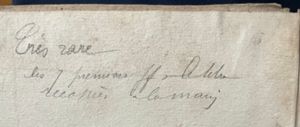 Très rare
les 7 premiers ff
recopiés à la main